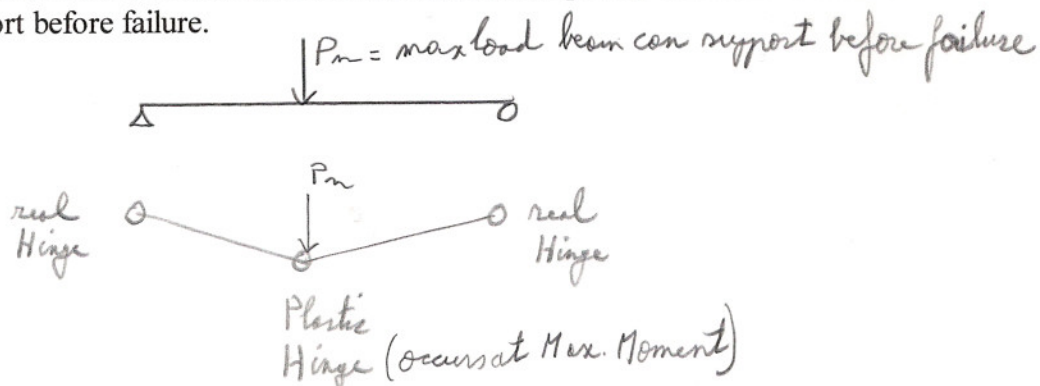 ort before failure.
Pn = max load beam can support before failure
Pn
real
Hinge
real
Hinge
Plastic
Hinge (occurs at Max. Moment)